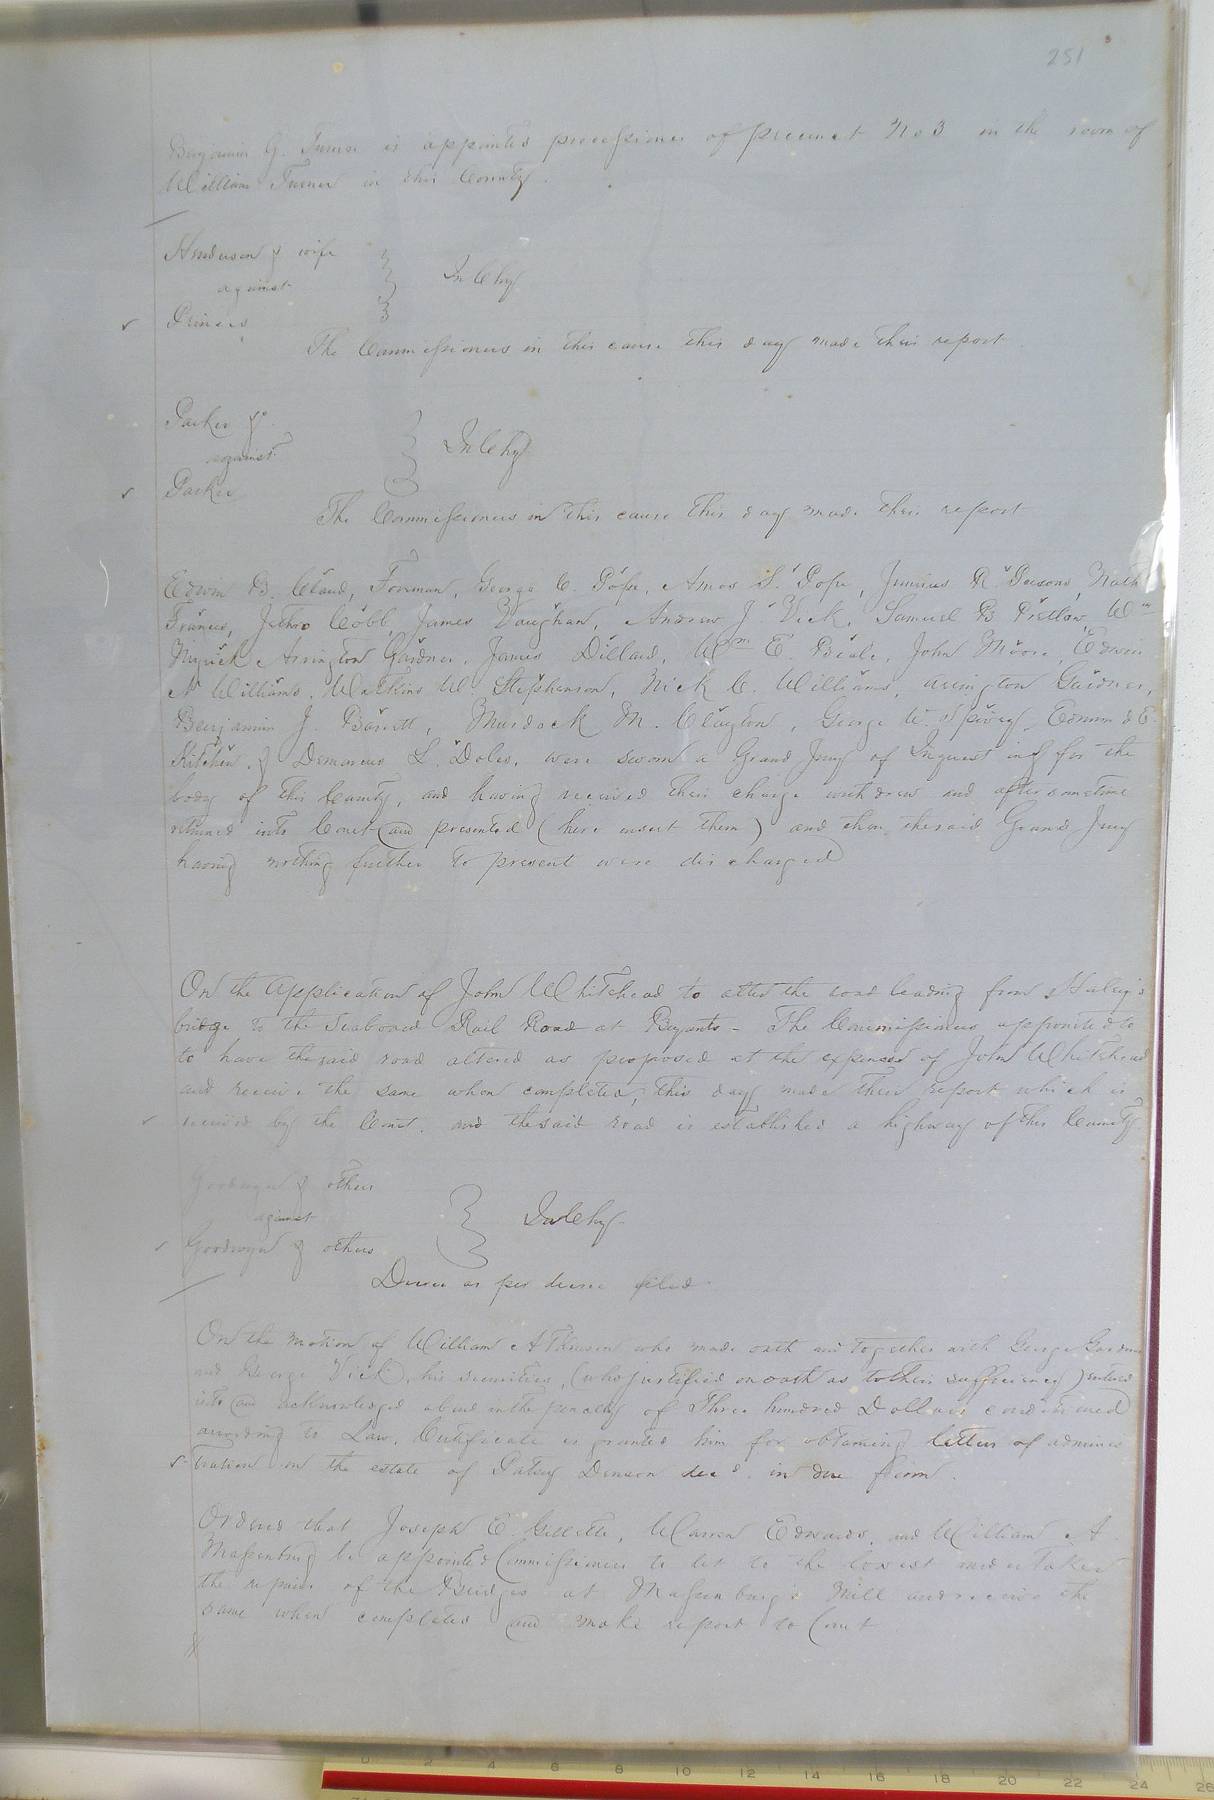 251
Benjamin G. Turner is appointed processioner of precinct No 3 in the room of
William Turner in this County.
Henderson & wife
against
In Chy
Princes
The Commissioners in this cause this day made their report
Parker &c
against
In Chy
Parker
The Commissioners in this cause this day made their report
Edwin B. Claud, Foreman, George C. Pope, Amos S. Pope, Junius R. Persons, Nath
Francis, Jethro Cobb, James Vaughan, Andrew J Vick, Samuel B Pretlow, Wm
Myrick Arrington Gardner, James Dillard, Wm E. Beale, John Moore, Edwin
N Williams, Watkins W. Stephenson, Nick C. Williams, Arrington Gardner,
Benjamin J. Barrett, Murdock M. Clayton, George W. Spivey, Edmund E.
Kitchen, & Demarcus L. Doles, were sworn a Grand Jury of Inquest in & for the
body of this County, and having received their charge withdrew and after sometime
returned into Court and presented (here insert them) and then the said Grand Jury
having nothing further to present were discharged
On the application of John Whitehead to alter the road leading from
bridge to the Seaboard Rail Road at Bryants - The Commissioners appointed to
to have the said road altered as proposed at the expense of John Whitehead
and receive the same when completed, this day made their report which is
received by the Court. and the said road is established a highway of this County
Goodwyn & others
against
In Chy
Goodwyn & others
Decree as per decree filed
On the motion of William A who made oath and together with George Gardner
and George Vick, his securities, (who justified on oath as to their sufficiency) entered
into and acknowledged a bond in the penalty of Three hundred Dollars conditioned
according to Law, Certificate is granted him for obtaining letters of adminis
tration on the estate of Patsey Denson decd. in due form.
Ordered that Joseph E. Gillette, Warren Edwards, and William A.
Massenburg be appointed Commissioners to let to the lowest undertaker
the repairs of the Bridges at Massenburg's Mill and receive the
same when completed and make report to Court